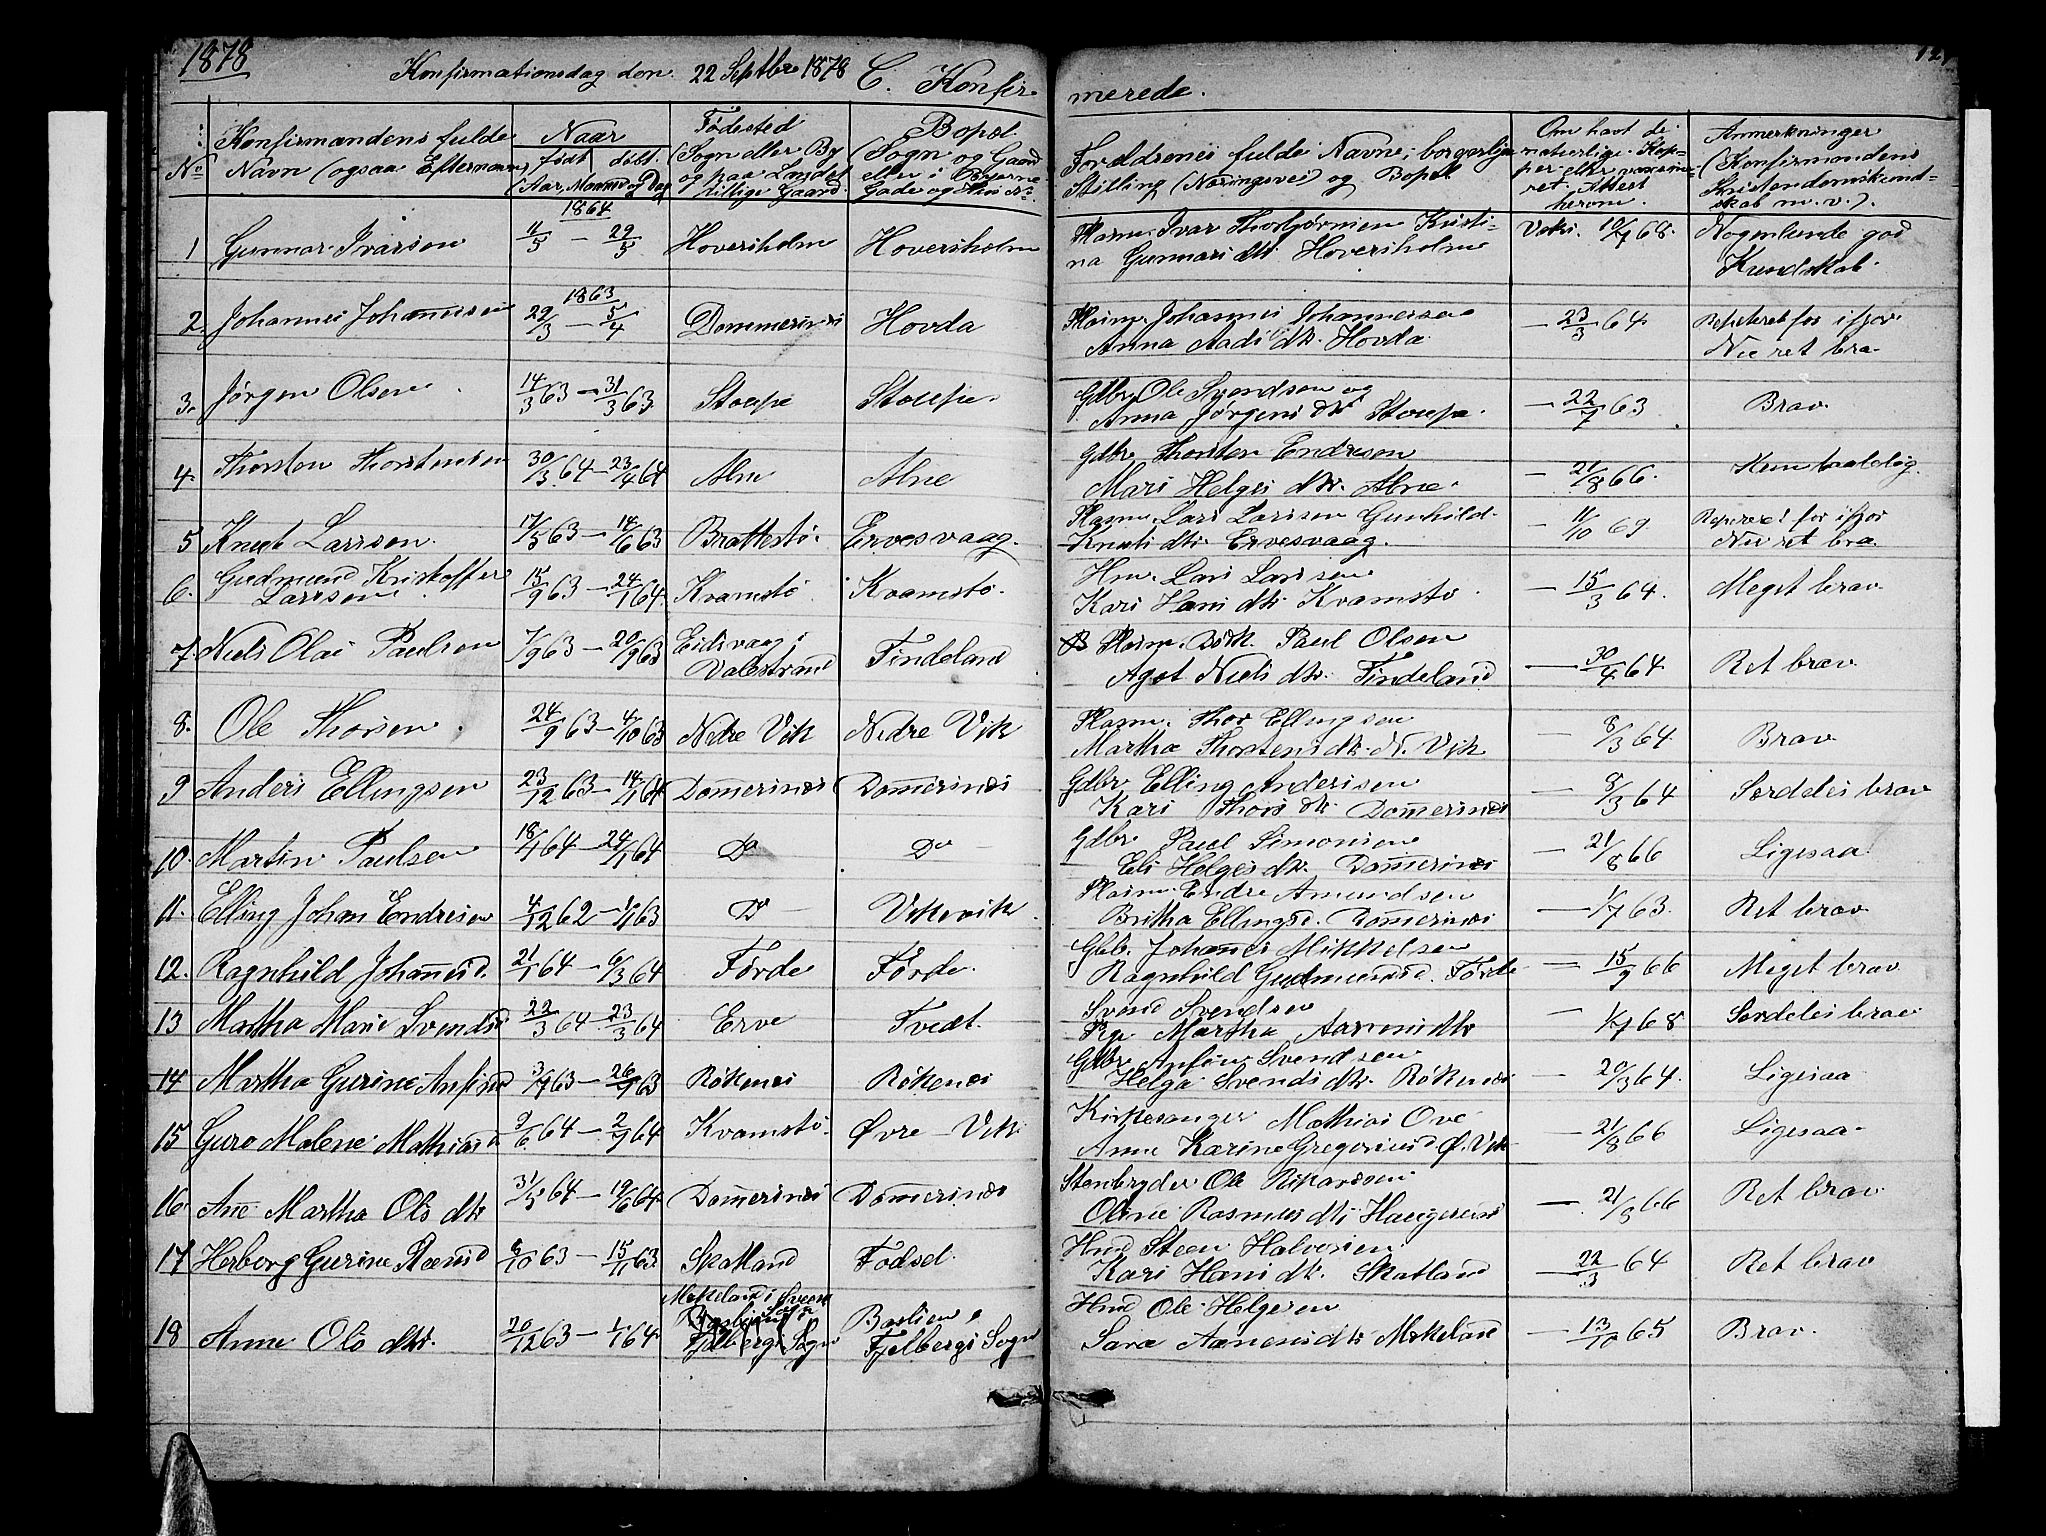 1878
Konfirmationsdag den 22 Septbr 1878 C. Konfir
merede.
No
Konfirmandens fulde
Navn (ogsaa Efternavn)
Naar
født døbt.
(Aar, Maaned og Dag
Fødested
(Sogn eller By
og paa Landet
tillige Gaard.
Bopæl
(Sogn og Gaard
eller i Byerne
Gade og Hus No.
Forældrenes fulde Navne, borgerlige
Stilling (Næringsvei) og Bopæl
Om havt de
naturlige Kop-
per eller vaccine-
ret. Attest
herom.
Anmerkninger
(Konfirmandens
Kristendomskund-
skab m. v.).
1 Gunnar Ivarsen 1864 11/5 — 29/5 Hoversholm Hoversholm
Plasm. Ivar Thorbjørnsen Kristi-
na Gunnars dtr. Hoversholm
Vaks. 10/7 68. Nogenlunde god
Kundskab.
2 Johannes Johannesen 1863 29/3 — 5/4 Dommersnes Hovda
Plasm. Johannes Johannesen
Anna Aads dtr. Hovda
— 23/3 64 ifjor
Nu ret bra
3. Jørgen Olsen 14/3 63 — 31/3 63 Stoupe Stoupe.
Gdbr. Ole Svendsen og
Anna Jørgens dtr. Stoupe.
— 22/7 63 Brav
4. Thorsten Thorstensen 30/3 64 — 23/4 64 Alne Alne
Gdbr. Thorsten Endresen
Mari Helges dtr. Alne.
— 21/8 66.
5 Knut Larsen. 17/5 63 — 14/6 63 Brattestø. Ervesvaag.
Plasm. Lars Larsen Gunhild
Knuts dtr. Ervesvaag.
— 11/10 69 for ifjor
Nu ret bra.
6. Gudmund Kristoffer
Larsen. 15/9 63 — 24/1 64. Kvamstø. Kvamstø.
Hm. Lars Larsen
Kari Hans dtr. Kvamstø
— 15/3 64. Meget brav
7. Niels Olai Paulsen 7/9 63 — 20/9 63 Eidsvaag i
Valestrand Findeland
Plasm. Paul Olsen
Agot Niels dtr. Findeland
— 30/4 64. Ret brav
8. Ole Thorsen. 24/9 63 — 4/10 63 Nedre Vik Nedre Vik
Plasm. Thor Ellingsen
Martha Thorstens dtr. N. Vik
— 8/3 64. Brav
9 Anders Ellingsen 23/12 63 — 14/1 64 Dom̄ersnes Dom̄ersnes
Gdbr. Elling Andersen
Kari Thors dtr. Dom̄ersnes
— 8/3 64 Særdeles brav
10. Martin Paulsen 18/1 64 — 24/1 64 Do Do
Gdbr. Paul Simonsen
Eli Helges dtr. Dom̄ersnes
— 21/8 66 Ligesaa
11. Elling Johan Endresen 4/12 62 — 1/1 63 Do Vikevik
Plasm. Endre Amundsen
Britha Ellingsd. Dom̄ersnes
— 1/7 63. Ret brav
12. Ragnhild Johannesd. 21/1 64 — 6/3 64 Førde Førde.
Gdb. Johannes Mikkelsen
Ragnhild Gudmundsd. Førde
— 15/9 66 Meget brav
13 Martha Marie Svendsd 22/3 64 — 23/3 64 Erve Tvedt.
Svend Svendsen
Pige Martha Aanens dtr
— 1/7 68 Særdeles brav
14 Martha Gurine Anfinsd 3/7 63 — 26/7 63 Røkenes Røkenes
Gdbr. Anfin Svendsen
Helga Svends dtr. Røkenes
— 20/3 64. Ligesaa
15 Guro Malene Mathiasd 9/6 64 — 2/7 64 Kvamstø. Øvre-Vik
Kirkesanger Mathias Ove
Anne Karine Gregoriusd Ø. Vik
— 21/8 66 Ligesaa
16. Ane Martha Ols dtr 31/5 64 — 19/6 64 Dom̄ersnes Dom̄ersnes
Stenbryder Ole Rikardsen
Oline Rasmus dtr Haugesund
— 21/8 66 Ret brav
17 Herborg Gurine Steensd 8/10 63 — 15/11 63 Skatland Fodsel.
Hmd Steen Halvorsen
Kari Hans dtr. Skatland
— 22/3 64 Ret brav
18 Anne Ols dtr. 20/12 63 — 1/1 64. Mekeland i Sveen
Sogn
Fjelbergs Sogn Baslien,
Fjelbergs Sogn
Hmd Ole Helgesen
Sara Aanens dtr Mekeland
— 13/10 65 Brav.